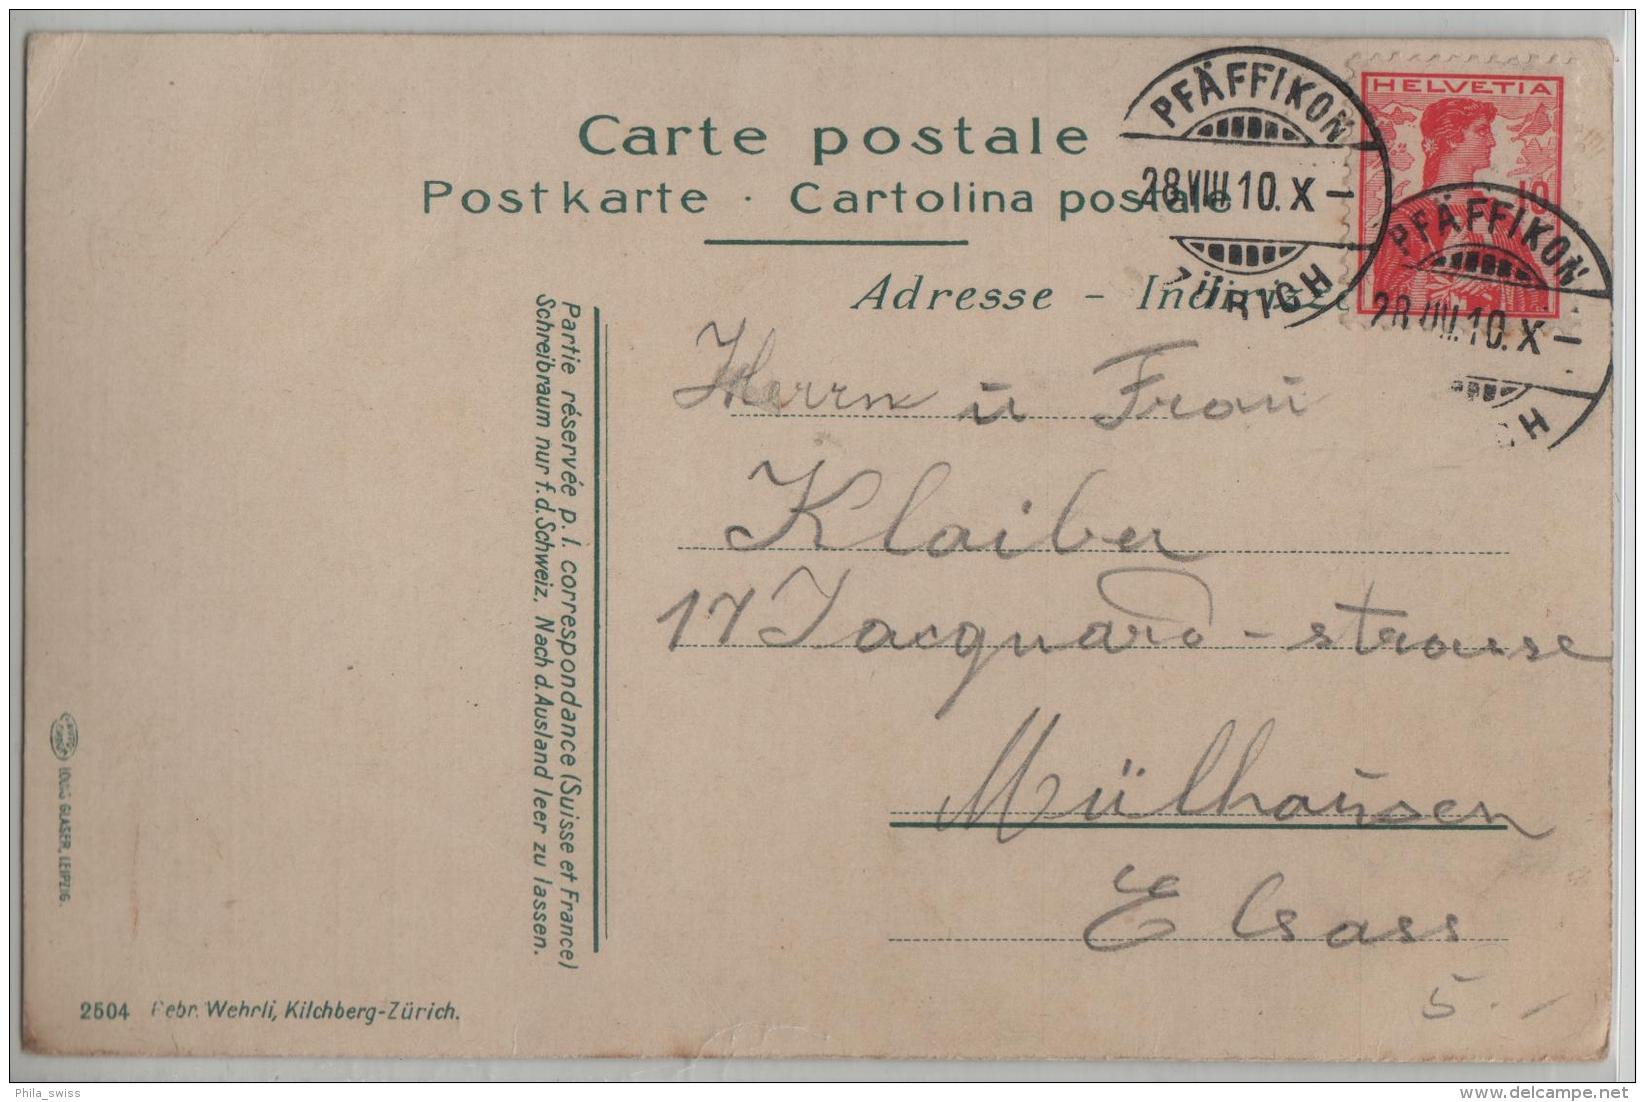 Carte postale
Postkarte · Cartolina postale
Adresse - Indirizzo
PFÄFFIKON
28.VIII.10.X-
ZÜRICH
HELVETIA
10
PFÄFFIKON
28.VIII.10.X-
CH
Herrn u Frau
Klaiber
17 Jacquard-strasse
Mülhausen
Elsass
5.-
Partie réservée p. l. correspondance (Suisse et France)
Schreibraum nur f. d. Schweiz. Nach d. Ausland leer zu lassen.
LOUIS GLASER, LEIPZIG.
2504 Gebr. Wehrli, Kilchberg-Zürich.
Phila_swiss
delcampe.net